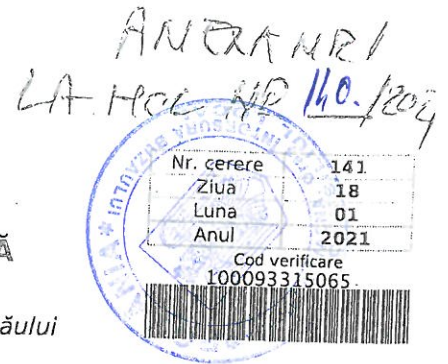 ANEXA NR 1
LA HCL NR 140./2024
Nr. cerere 141
Ziua 18
Luna 01
Anul 2021
Cod verificare
100093315065
Ă
ăului
ÎNTORSURA BUZĂULUI